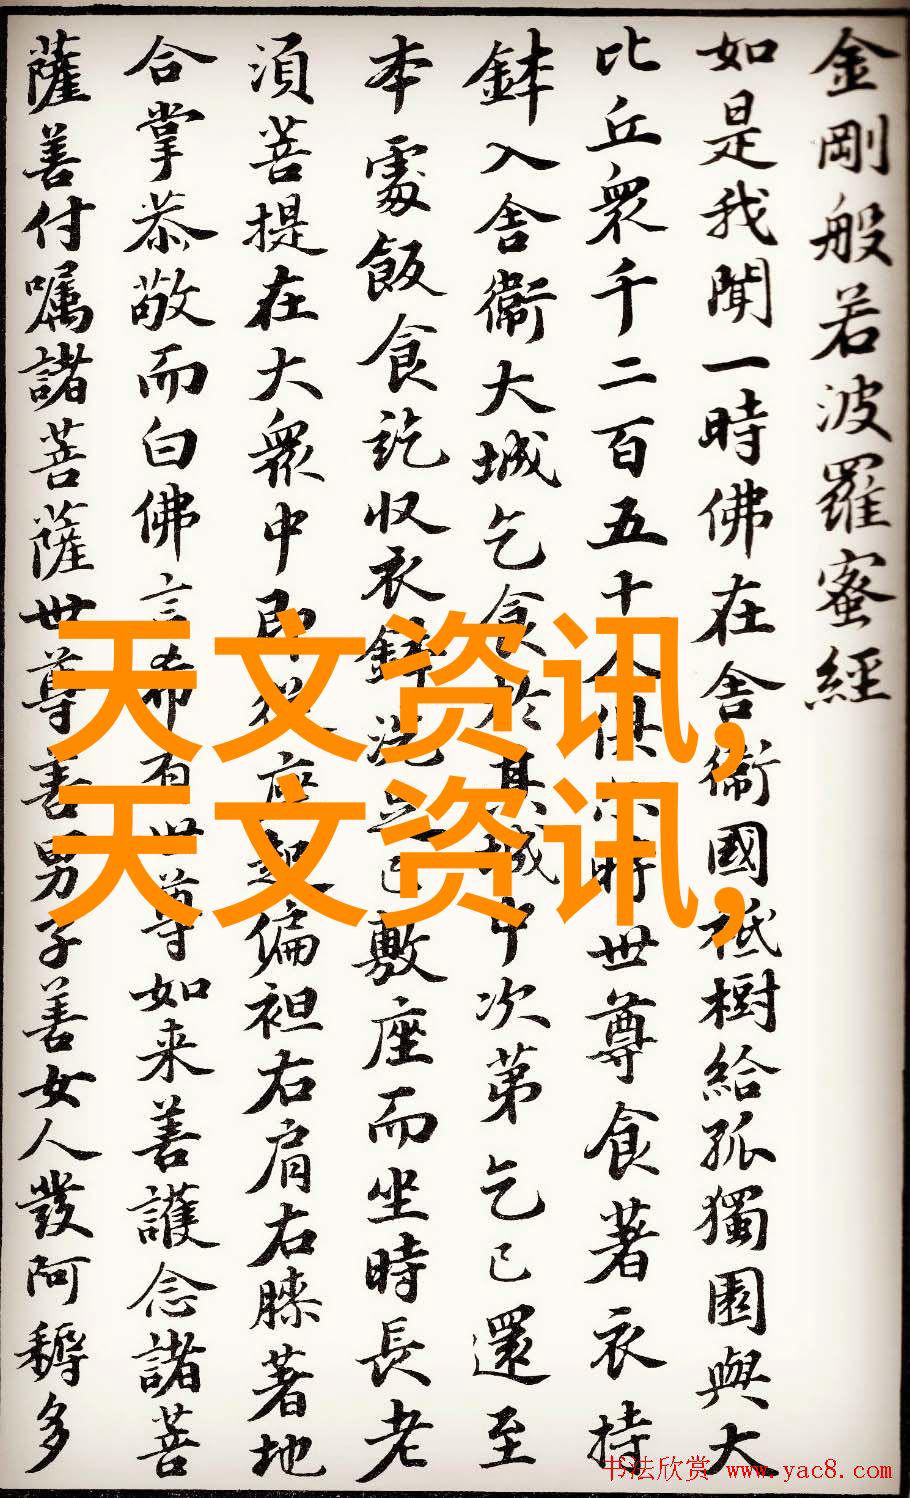 金剛般若波羅蜜經
如是我聞一時佛在舍衞國祇樹給孤獨園與大
比丘眾千二百五十人俱尒時世尊食著衣持
鉢入舍衞大城乞食於其城中次第乞已還至
本處飯食訖收衣鉢洗足已敷座而坐時長老
須菩提在大眾中即從座起偏袒右肩右膝著地
合掌恭敬而白佛言希有世尊如来善護念諸菩
薩善付嘱諸菩薩世尊善男子善女人發阿耨多
天文资讯,
天文资讯,
书法欣赏 www.yac8.com